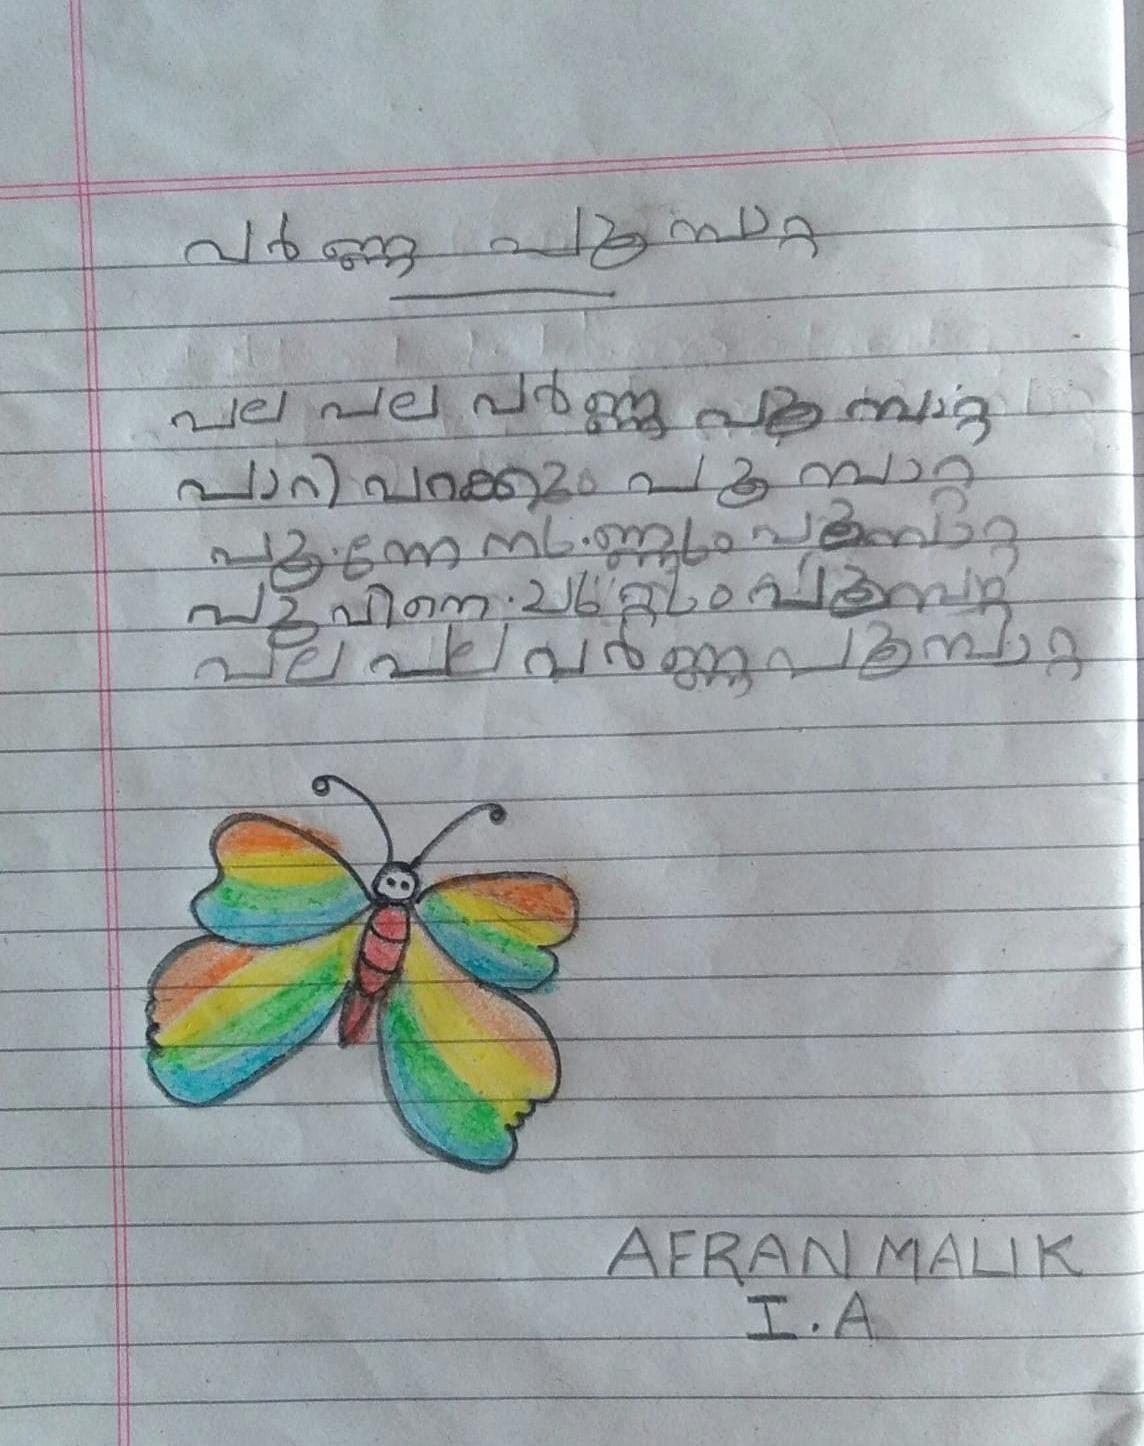 വർണ്ണ പൂമ്പാറ്റ
പല പല വർണ്ണ പൂമ്പാറ്റ
പാറി പറക്കും പൂമ്പാറ്റ
പൂമ്പാറ്റ
പൂവിനെ പൂമ്പറ്റ
പല പല വർണ്ണ പൂമ്പാറ്റ
AFRAN MALIK
I.A